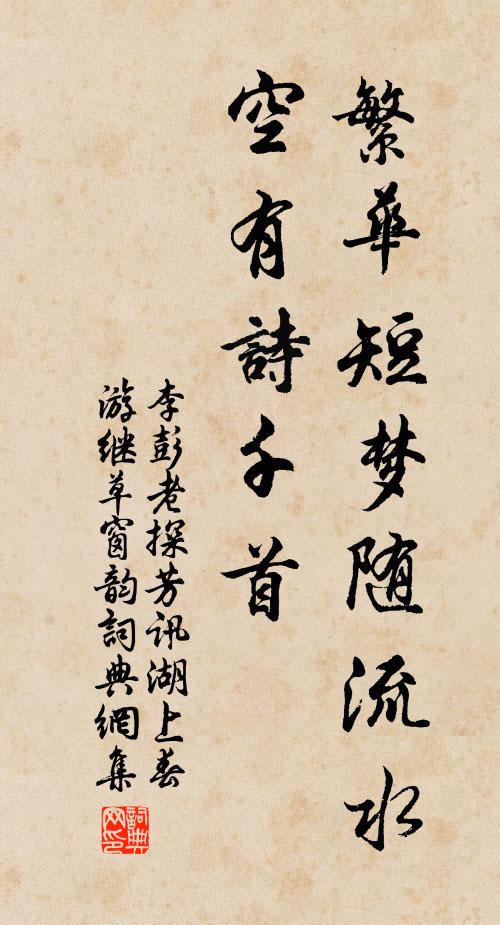 繁華短梦随流水
空有詩千首
李彭老探芳讯湖上春
游继草窗韵詞典網集
詞典
网印